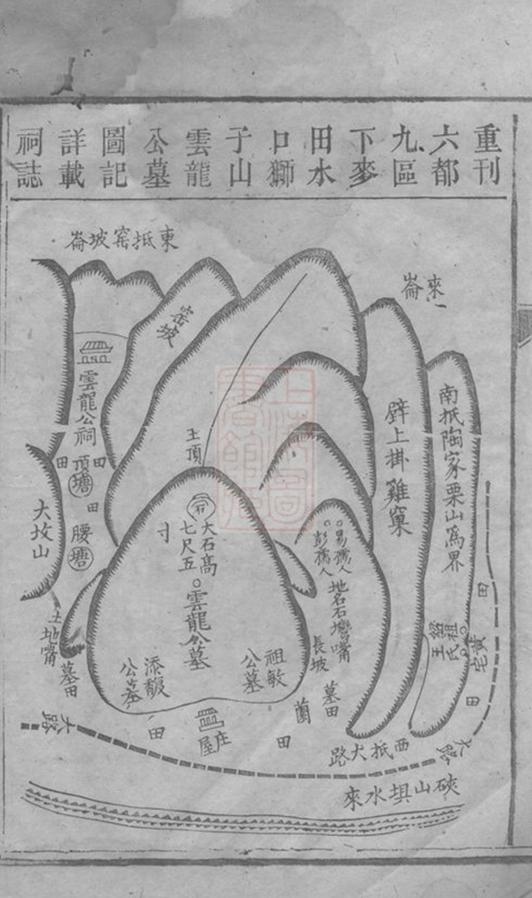 重刊
六都
九區
下麥
田水
口獅
子山
雲龍
公墓
圖記
詳載
祠誌
東抵窑坡崙
來崙
窑坡
雲龍公祠
田
頂塘
田
田
腰塘
大坟山
土頂
石
大石高七尺五寸
雲龍公墓
祖敏公墓
添馥公墓
易孺人
彭孺人
地名石灣嘴
長坡
墓田
壁上掛雞窠
南抵陶家栗山爲界
祖
王氏
黃宅
田
田
土地嘴
墓田
田
莊屋
田
大路
大路
西抵大路
硤山垻水來